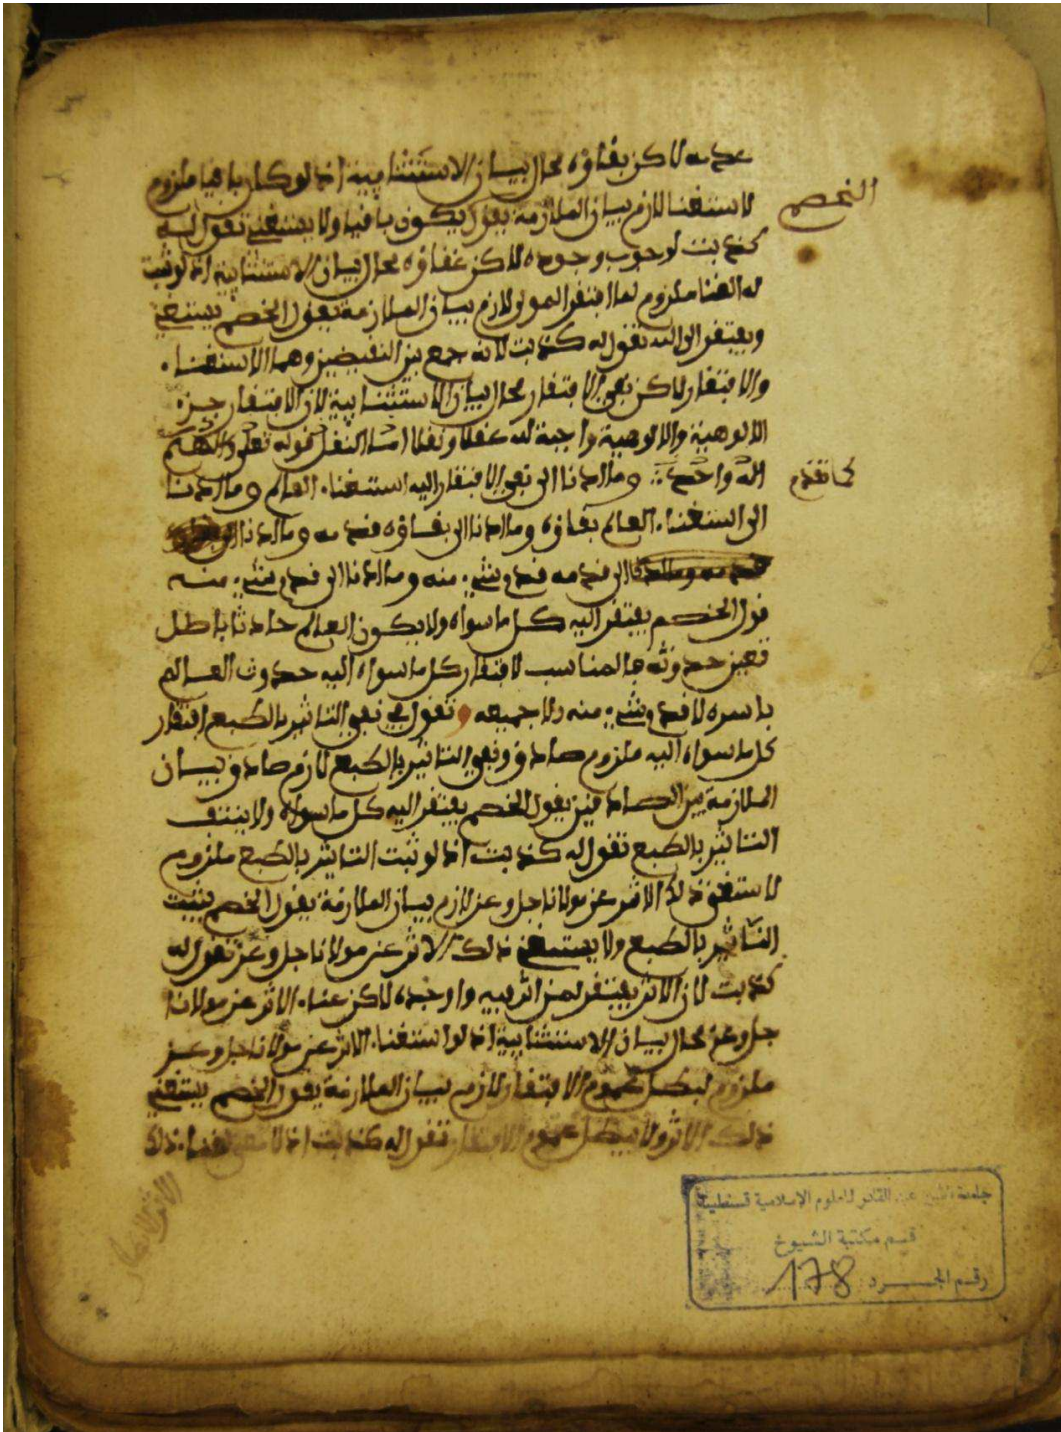 عدمه لاكن بقاؤه محال بيان الاستثنايية اذ لو كان باقيا ملزوم
الخصم
لاستغنا لازم بيان الملازمة يقول يكون باقيا ولا يستغني تقول له
كذبت لوجوب وجوده لاكن غناؤه محال بيان الاستثنايية اذ لو ثبت
له الغنا ملزوم لما افتقر الى لازم بيان الملازمة يقول الخصم يستغني
ويفتقر الى الله تقول له كذبت لانه جمع بين النقيضين وهما الاستغناء
والافتقار لاكن نفي الافتقار محال بيان الاستثنايية لان الافتقار جزء
الالوهية والالوهية واجبة لله عقلا ونقلا اما النقل قوله تعلى والهكم
اله واحد وما ادنا الى نفي الافتقار اليه استغناء العالم وما ادنا
كما تقدم
الى استغناء العالم بقاؤه وما ادنا الى بقاؤه قدمه وما ادنا
الى قدمه قدم شيء منه وما ادنا الى قدم شيء منه
قول الخصم يفتقر اليه كل ما سواه ولا يكون العالم حادثا باطل
تعين حدوثه فالمناسب لافتقار كل ما سواه اليه حدوث العالم
باسره لا قدم شيء منه ولا جميعه وتقول في نفي التاثير بالطبع افتقار
كل ما سواه اليه ملزوم صادق ونفي التاثير بالطبع لازم صادق بيان
الملازمة بين الصادقين يقول الخصم يفتقر اليه كل ما سواه ولا ينتف
التاثير بالطبع تقول له كذبت اذ لو ثبت التاثير بالطبع ملزوم
لاستغنى ذلك الاثر عن مولانا جل وعز لازم بيان الملازمة يقول الخصم يثبت
التاثير بالطبع ولا يستغني ذلك الاثر عن مولانا جل وعز تقول له
كذبت لان الاثر يفتقر لمن اثر فيه واوجده لاكن غناء الاثر عن مولانا
جل وعز محال بيان الاستثنايية اذ لو استغناء الاثر عن مولانا جل وعز
ملزوم لبطل عموم الافتقار لازم بيان الملازمة يقول الخصم يستغني
ذلك الاثر ولا يبطل عموم الافتقار تقول له كذبت اذ ذلك
جامعة الأمير عبد القادر للعلوم الإسلامية قسنطينة
قسم مكتبة الشيوخ
رقم الجرد 178